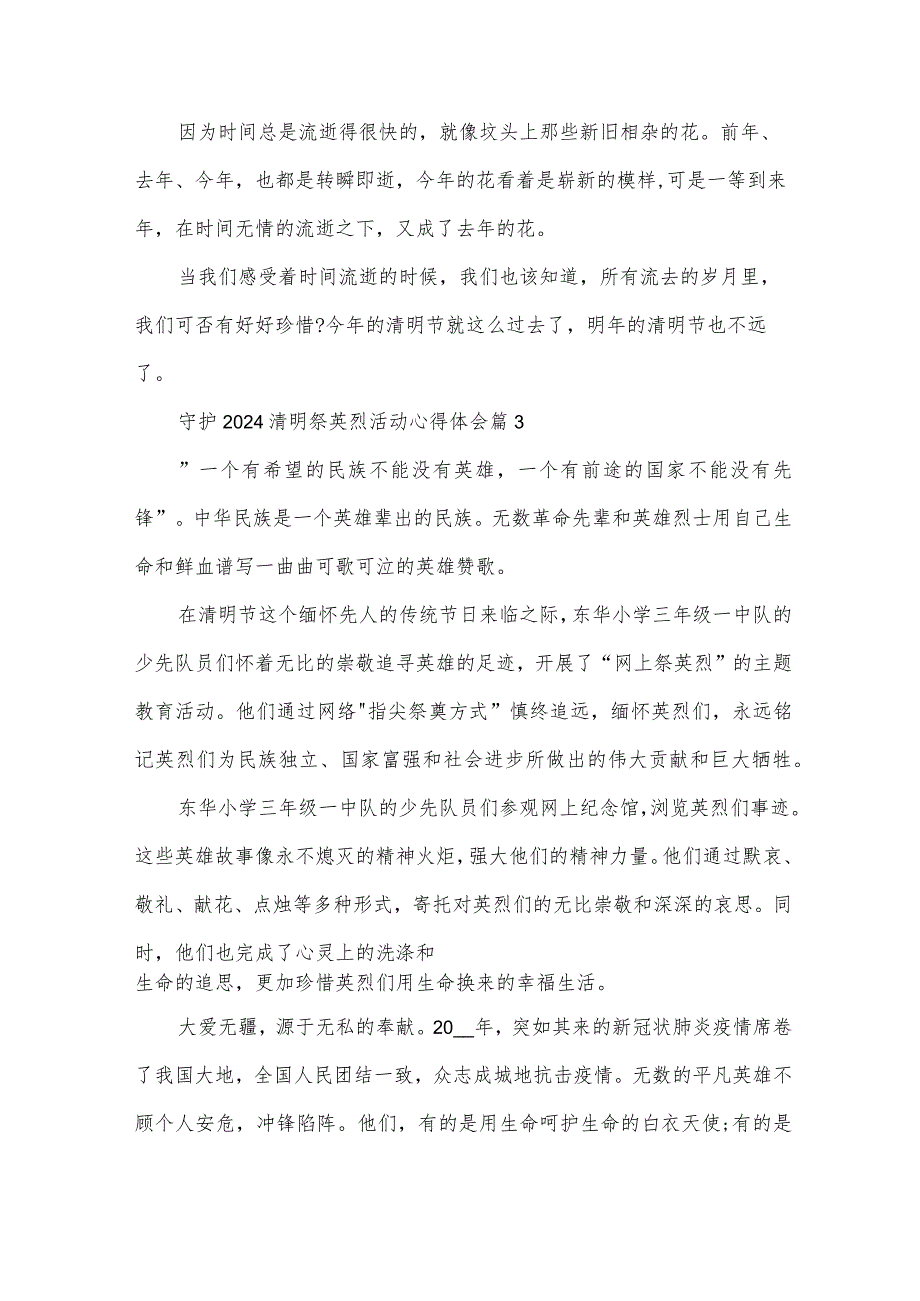 因为时间总是流逝得很快的，就像坟头上那些新旧相杂的花。前年、
去年、今年，也都是转瞬即逝，今年的花看着是崭新的模样,可是一等到来
年，在时间无情的流逝之下，又成了去年的花。
当我们感受着时间流逝的时候，我们也该知道，所有流去的岁月里，
我们可否有好好珍惜?今年的清明节就这么过去了，明年的清明节也不远
了。
守护2024清明祭英烈活动心得体会篇3
”一个有希望的民族不能没有英雄，一个有前途的国家不能没有先
锋”。中华民族是一个英雄辈出的民族。无数革命先辈和英雄烈士用自己生
命和鲜血谱写一曲曲可歌可泣的英雄赞歌。
在清明节这个缅怀先人的传统节日来临之际,东华小学三年级一中队的
少先队员们怀着无比的崇敬追寻英雄的足迹，开展了“网上祭英烈”的主题
教育活动。他们通过网络"指尖祭奠方式”慎终追远，缅怀英烈们，永远铭
记英烈们为民族独立、国家富强和社会进步所做出的伟大贡献和巨大牺牲。
东华小学三年级一中队的少先队员们参观网上纪念馆,浏览英烈们事迹。
这些英雄故事像永不熄灭的精神火炬,强大他们的精神力量。他们通过默哀、
敬礼、献花、点烛等多种形式，寄托对英烈们的无比崇敬和深深的哀思。同
时，他们也完成了心灵上的洗涤和
生命的追思，更加珍惜英烈们用生命换来的幸福生活。
大爱无疆，源于无私的奉献。20__年，突如其来的新冠状肺炎疫情席卷
了我国大地，全国人民团结一致，众志成城地抗击疫情。无数的平凡英雄不
顾个人安危，冲锋陷阵。他们，有的是用生命呵护生命的白衣天使;有的是